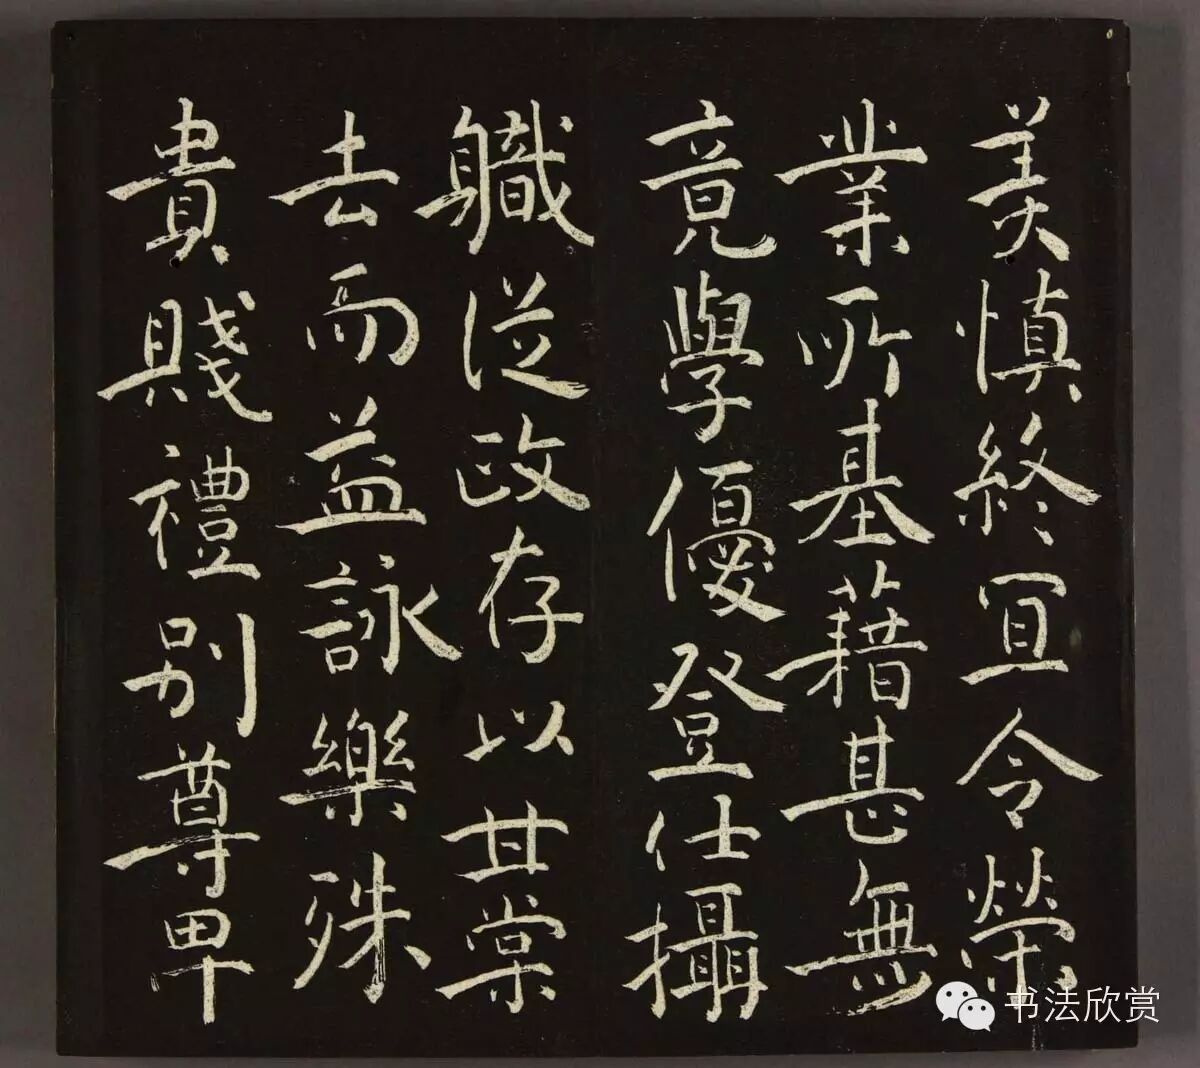 美慎終宜令榮
業所基藉甚無
竟學優登仕攝
軄從政存以甘棠
去而益詠樂殊
貴賤禮別尊卑
书法欣赏